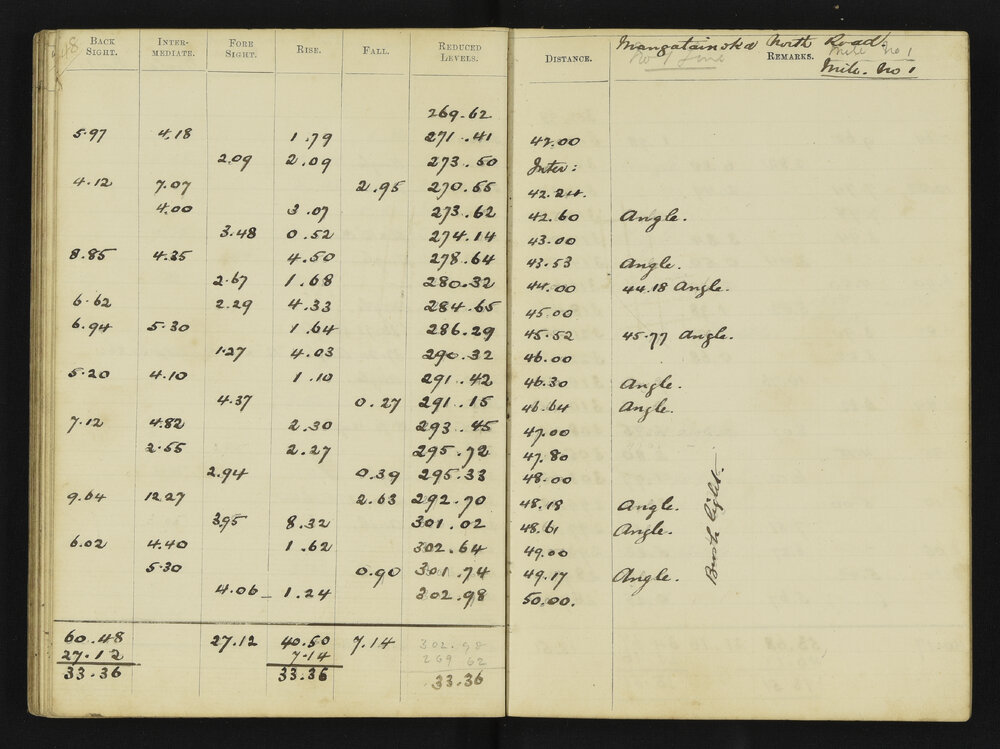 BACK SIGHT. INTER-MEDIATE. FORE SIGHT. RISE. FALL. REDUCED LEVELS. DISTANCE. REMARKS.
Mangatainoka North Road.
Mile No 1
Mile. No 1
269.62
5.97 4.18 1.79 271.41 42.00
2.09 2.09 273.50 Inter:
4.12 7.07 2.95 270.55 42.24.
4.00 3.07 273.62 42.60 Angle.
3.48 0.52 274.14 43.00
8.85 4.35 4.50 278.64 43.53 Angle.
2.67 1.68 280.32 44.00 44.18 Angle.
6.62 2.29 4.33 284.65 45.00
6.94 5.30 1.64 286.29 45.52 45.77 Angle.
1.27 4.03 290.32 46.00
5.20 4.10 1.10 291.42 46.30 Angle.
4.37 0.27 291.15 46.64 Angle.
7.12 4.82 2.30 293.45 47.00
2.55 2.27 295.72 47.80
2.94 0.39 295.33 48.00
9.64 12.27 2.63 292.70 48.18 Angle.
3.95 8.32 301.02 48.61 Angle.
6.02 4.40 1.62 302.64 49.00
5.30 0.90 301.74 49.17 Angle.
4.06 1.24 302.98 50.00.
Bush light.
60.48 27.12 40.50 7.14 302.98
27.12 7.14 269 62
33.36 33.36 33.36